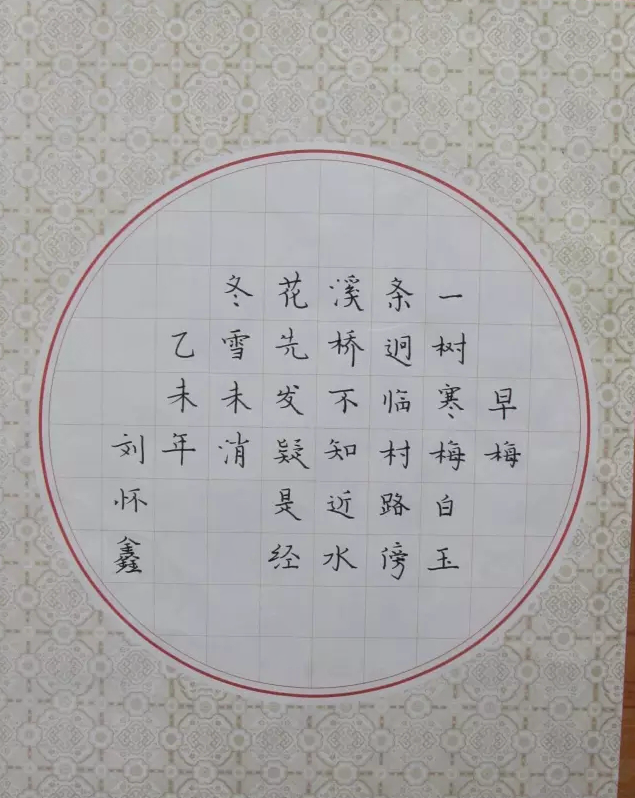 早梅
一树寒梅白玉
条迥临村路傍
溪桥不知近水
花先发疑是经
冬雪未消
乙未年
刘怀鑫